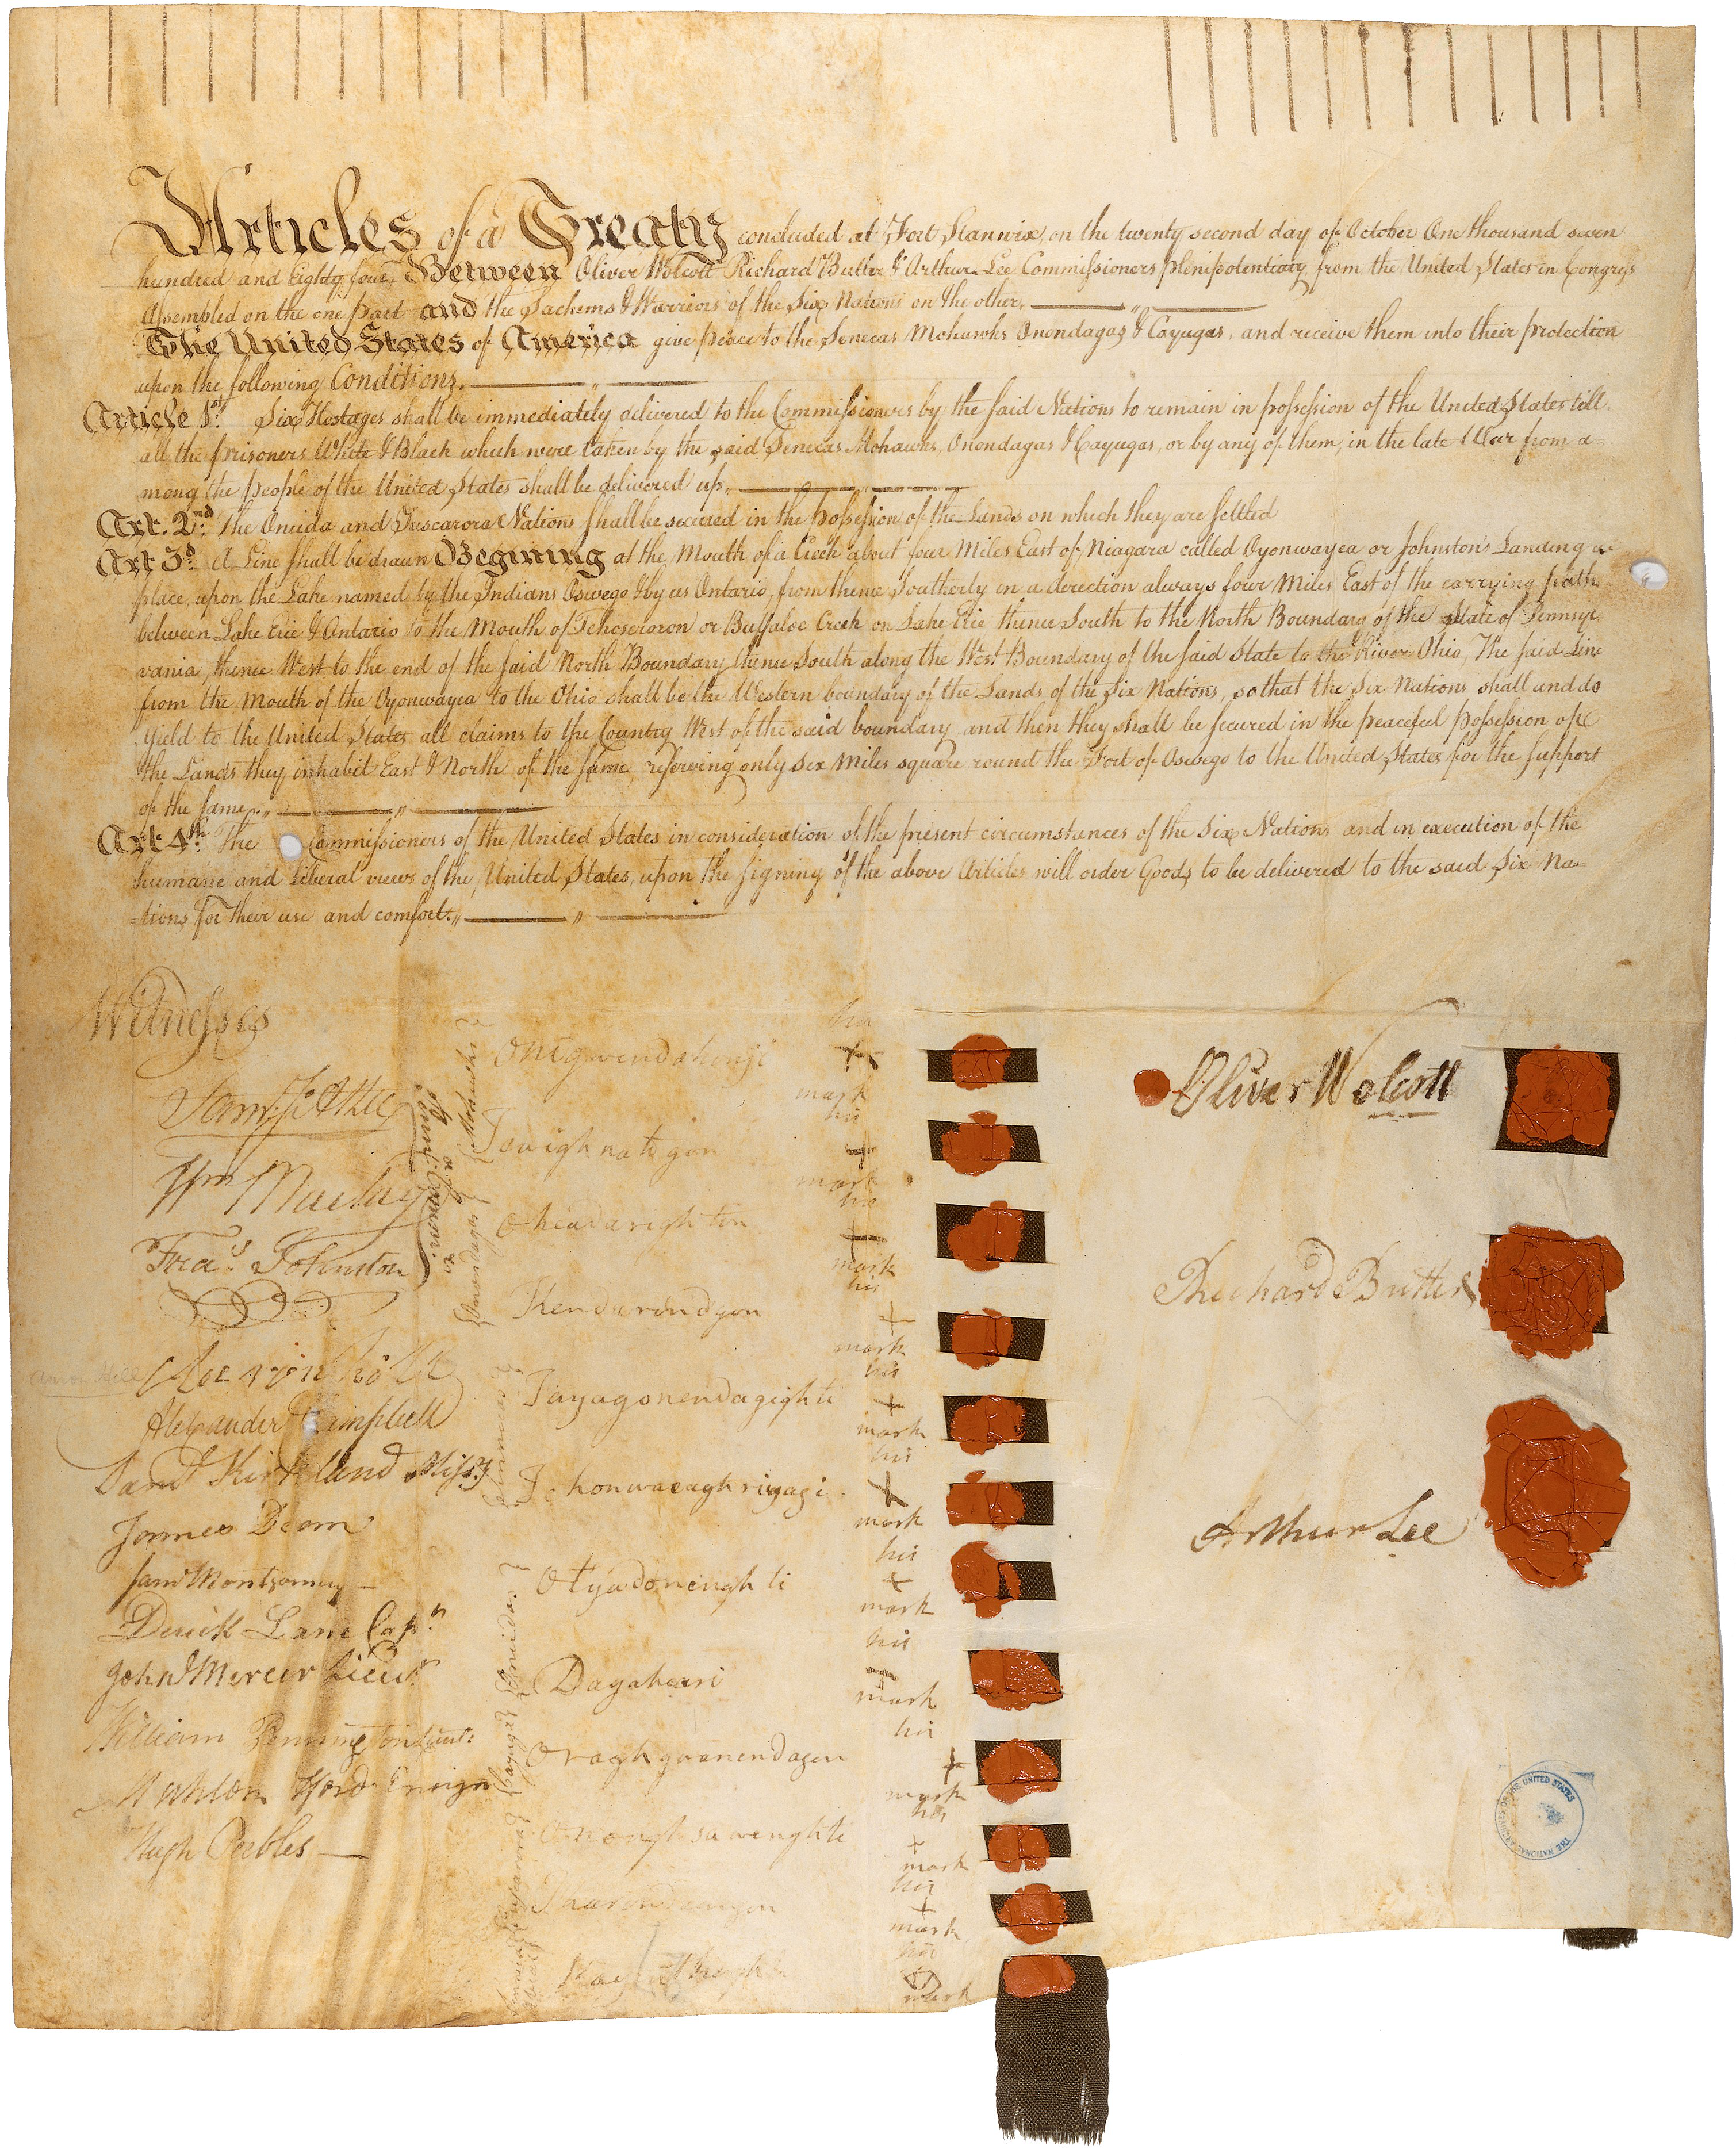 Articles of a Treaty concluded at Fort Stanwix, on the twenty second day of October One thousand seven
hundred and Eighty four, Between Oliver Wolcott Richard Butler & Arthur Lee Commissioners plenipotentiary from the United States in Congress
Assembled on the one part and the Sachems & Warriors of the Six Nations on the other.
The United States of America give peace to the Senecas Mohawks Onondagas & Cayugas, and receive them into their protection
upon the following Conditions.
Article 1st. Six Hostages shall be immediately delivered to the Commissioners by the said Nations to remain in possession of the United States till
all the prisoners White & Black which were taken by the said Senecas Mohawks, Onondagas & Cayugas, or by any of them, in the late War from a=
mong the people of the United States shall be delivered up,
Art. 2nd. The Oneida and Tuscarora Nations shall be secured in the possession of the Lands on which they are settled
Art 3d. A Line shall be drawn Begining at the Mouth of a Creek about four Miles East of Niagara called Oyonwayea or Johnston's Landing
place, upon the Lake named by the Indians Oswego & by us Ontario, from thence Southerly in a direction always four Miles East of the carrying path
between Lake Erie & Ontario to the Mouth of Tehoseroron or Buffaloe Creek on Lake Erie thence South to the North Boundary of the State of Pennsyl
vania, thence West to the end of the said North Boundary thence South along the West Boundary of the said State to the River Ohio, The said Line
from the Mouth of the Oyonwayea to the Ohio shall be the Western boundary of the Lands of the Six Nations, so that the Six Nations shall and do
yield to the United States all claims to the Country West of the said boundary and then they shall be secured in the peaceful possession of
the Lands they inhabit East & North of the same, reserving only six Miles square round the Fort of Oswego to the United States for the support
of the same.
Art 4th. The Commissioners of the United States in consideration of the present circumstances of the Six Nations and in execution of the
humane and liberal views of the United States, upon the signing of the above Articles will order Goods to be delivered to the said Six Na=
=tions for their use and comfort.
Witnesses
Sam. J. Atlee
Wm Maclay
Fras. Johnston
Pennsyl. Commrs.
Aaron Hill
Alexander Campbell
Saml Kirkland Missy
James Dean
Saml Montgomery
Derick Lane Capn
John Mercer Lieut
William Pennington Lieut:
Mahlon Hord Ensign
Hugh Peebles
Mohawks
Onondagas
Senecas
Oneidas
Cayuga
Tuscarora
Onigwendahonji
his
mark
Towighnatogon
his
mark
Oheadarighton
his
mark
Kendarindgon
his
mark
Tayagonendagighti
his
mark
Tehonwaeaghriyagi
his
mark
Otyadonenghti
his
mark
Dagaheari
his
mark
Oraghgoanendagen
his
mark
Ononghsawenghti
his
mark
Tharondawagon
his
mark
his
mark
Oliver Wolcott
Richard Butler
Arthur Lee
THE NATIONAL ARCHIVES OF THE UNITED STATES